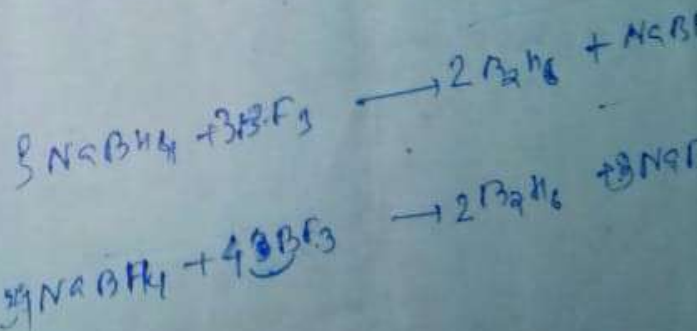 3NaBH4 + 3BF3 → 2B2H6 + NaB
NaBH4 + 4BF3 → 2B2H6 + 3Na